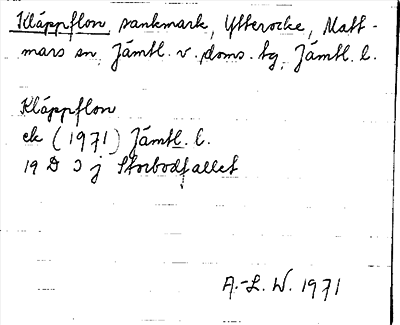 Kläppflon sankmark, Ytterocke, Matt-
mars sn, Jämtl. v. doms. tg, Jämtl. l.
Kläppflon
ek (1971) Jämtl. l.
19 D 3 j Storbodfallet
A.-L. W. 1971